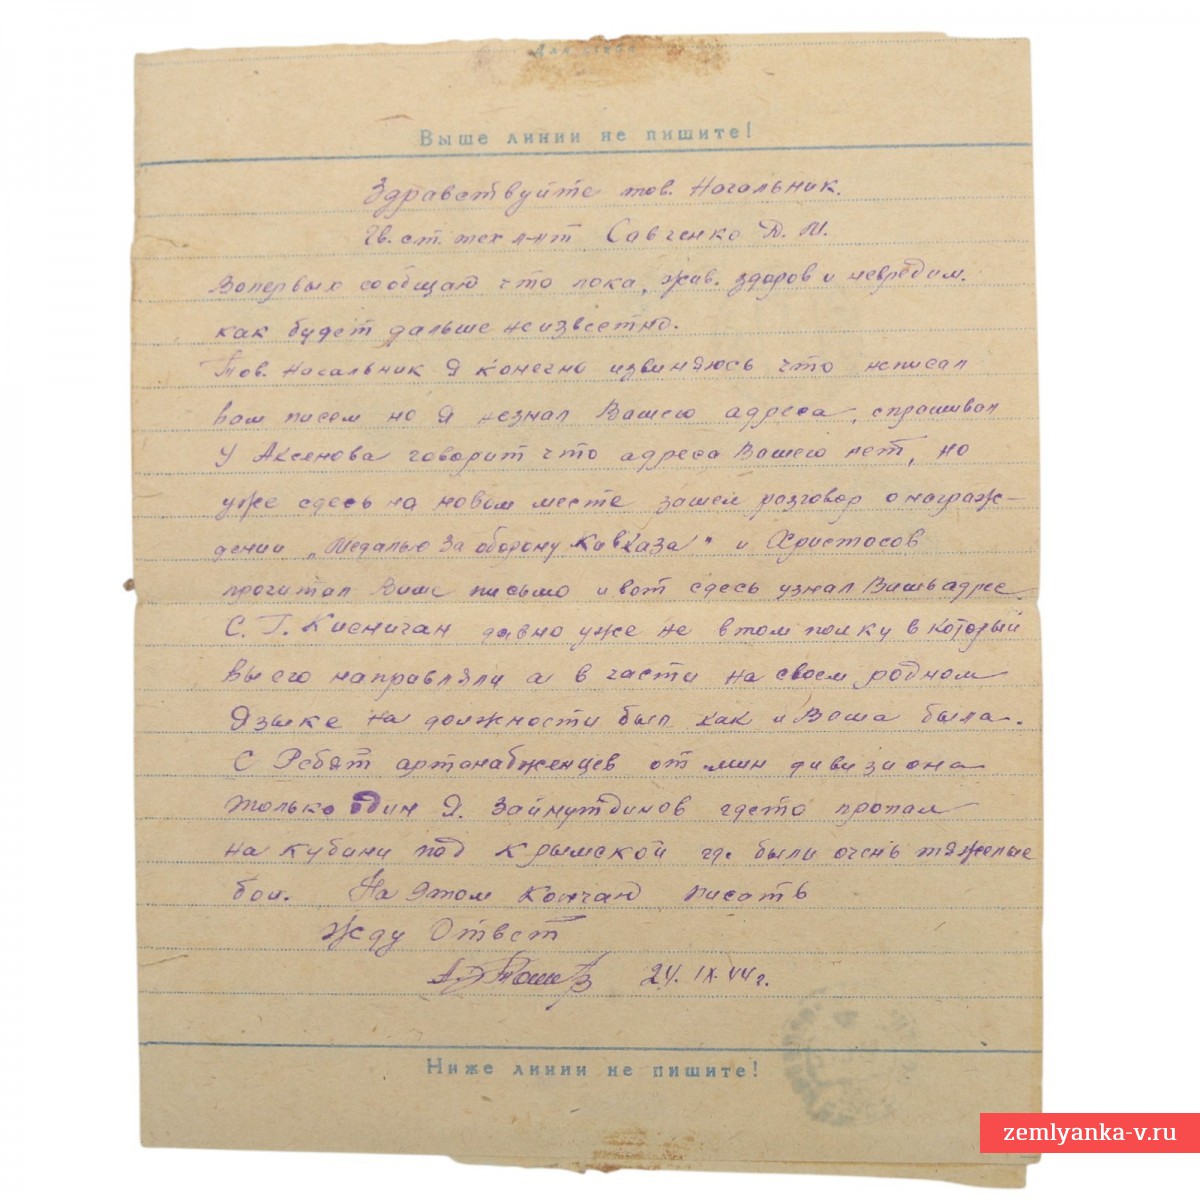 Для клея
Выше линии не пишите!
Здравствуйте тов. Начальник.
Гв. ст. тех л-нт Савченко Д. М.
Вопервых сообщаю что пока, жив. здоров и невредим.
как будет дальше неизвестно.
Тов. Начальник я конечно извиняюсь что неписал
вам писем но я незнал Вашего адреса, спрашивал
у Аксенова говорит что адреса Вашего нет, но
уже сдесь на новом месте зашел разговор о награж-
дении „Медалью За оборону Кавказа" и Христосов
прочитал Ваше письмо и вот сдесь узнал Вашь адрес
С. Г. давно уже не в том полку в который
вы его направляли а в части на своем родном
языке на должности был как и Ваша была.
С Ребят артснабженцев от мин дивизиона
только один я. Займутдинов гдето пропал
на кубани под Крымской где были очень тяжелые
бои. На этом кончаю писать
Жду Ответ
24. IX. 44 г.
Ниже линии не пишите!
zemlyanka-v.ru